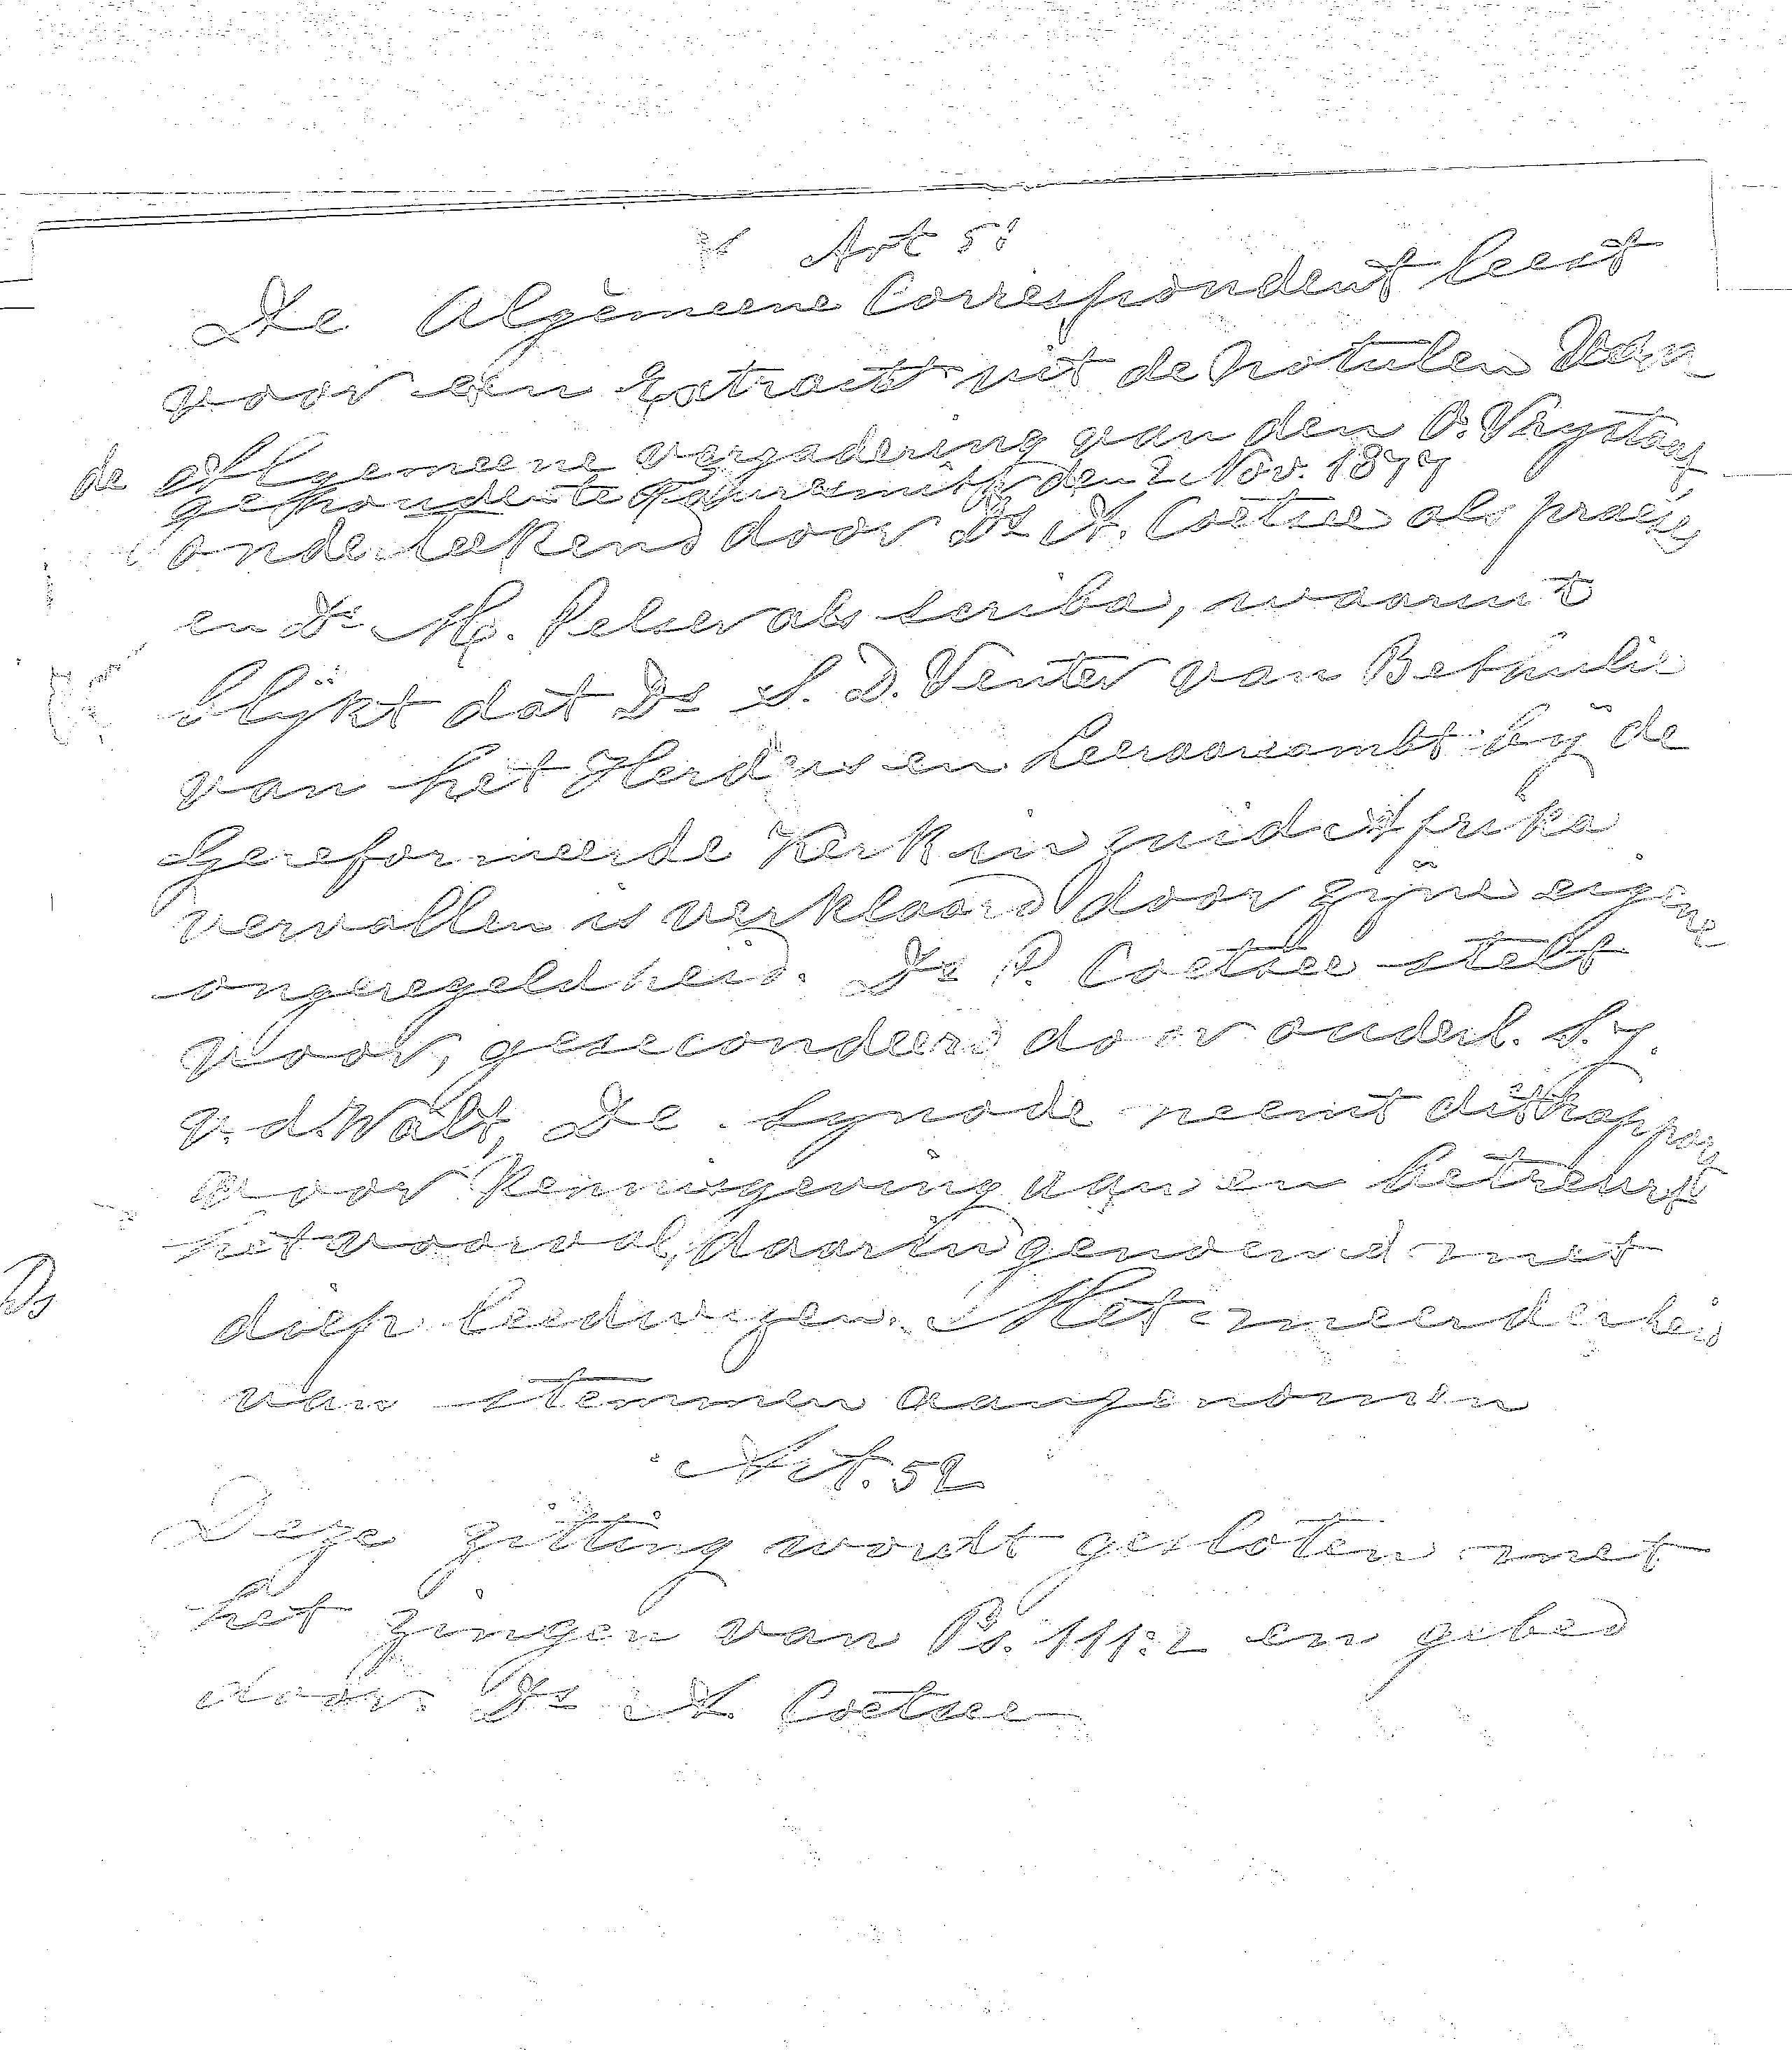 Art 51
De Algemeene Correspondent leest
voor een Extract uit de Notulen van
de Algemeene vergadering van den O. Vrystaat
gehouden te Fouriesmith den 2 Nov. 1877
onderteekend door Ds A. Coetsee als praeses
en Ds M. Pelser als scriba, waaruit
blijkt dat Ds S. D. Venter van Bethulie
van het Herders en Leeraarsambt bij de
Gereformeerde Kerk in Zuid Afrika
vervallen is verklaard door zijne eigene
ongeregeldheid. Ds P. Coetsee stelt
voor, gesecondeerd door ouderl. S. J.
v. d. Walt, De Synode neemt dit Rapport
voor Kennisgeving aan en betreurt
het voorval, daarin genoemd met
diep leedwezen. Met meerderheid
van stemmen aangenomen
Art. 52
Deze zitting wordt gesloten met
het zingen van Ps. 111:2 en gebed
door Ds A. Coetsee